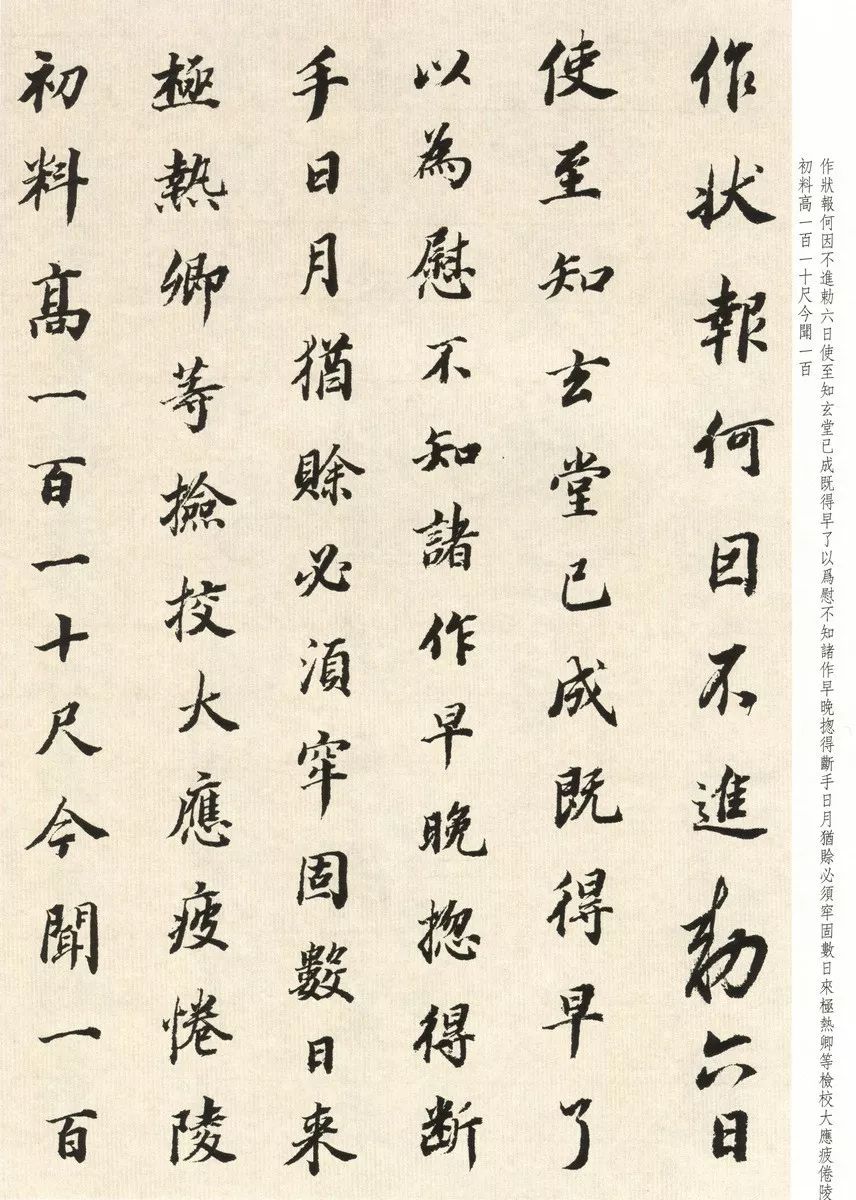 作狀報何因不進勅六日
使至知玄堂已成既得早了
以為慰不知諸作早晚揔得斷
手日月猶賒必須牢固數日来
極熱卿等撿挍大應疲惓陵
初料高一百一十尺今聞一百
作狀報何因不進勅六日使至知玄堂已成既得早了以爲慰不知諸作早晚揔得斷手日月猶賒必須窂固數日來極熱卿等檢校大應疲倦陵
初料高一百一十尺今聞一百